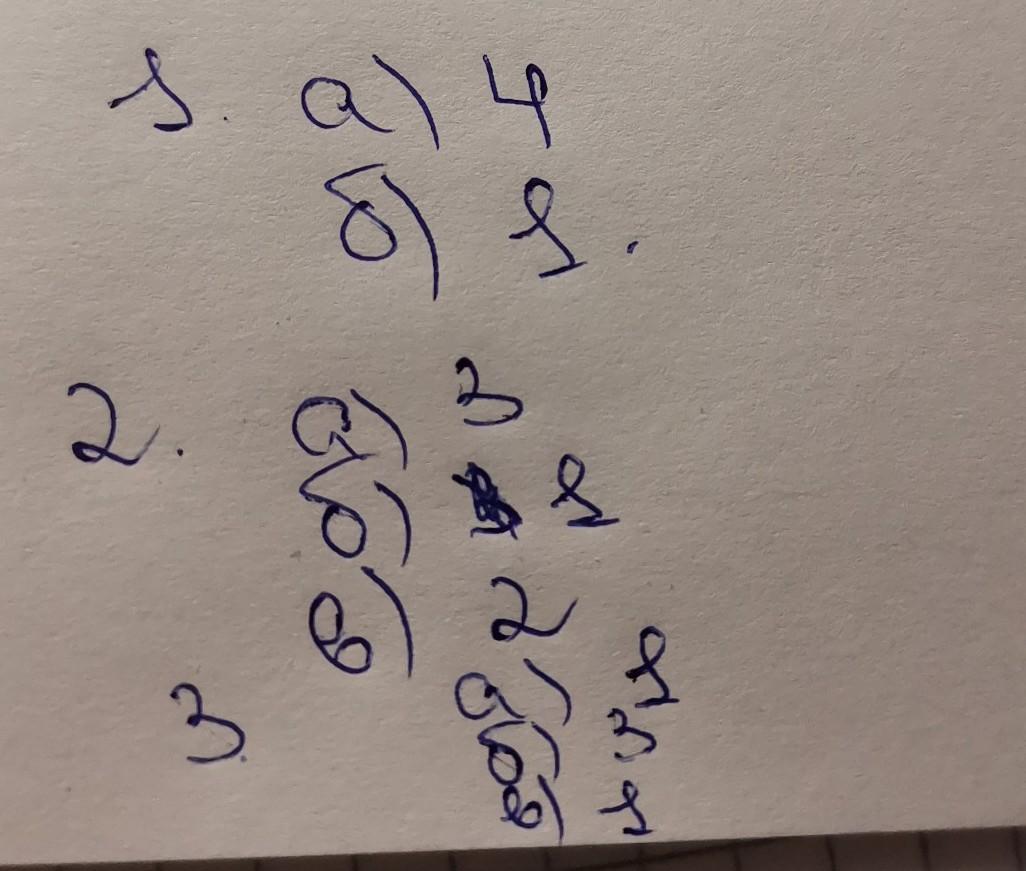 1. а) 4
б) 1.
2. а) 3
б) 1
в) 2
3. а) 1
б) 3
в) 1